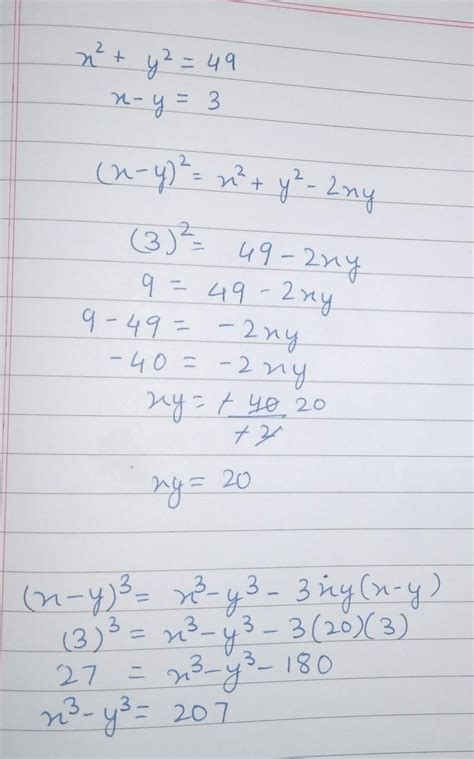 x² + y² = 49
x - y = 3
(x-y)² = x² + y² - 2xy
(3)² = 49 - 2xy
9 = 49 - 2xy
9 - 49 = -2xy
-40 = -2xy
xy = +40 20
+2
xy = 20
(x-y)³ = x³ - y³ - 3xy(x-y)
(3)³ = x³ - y³ - 3(20)(3)
27 = x³ - y³ - 180
x³ - y³ = 207